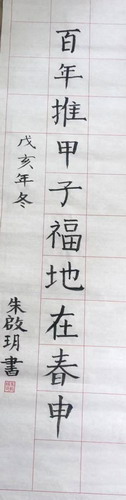 百年推甲子福地在春申
戊亥年冬
朱啟玥書